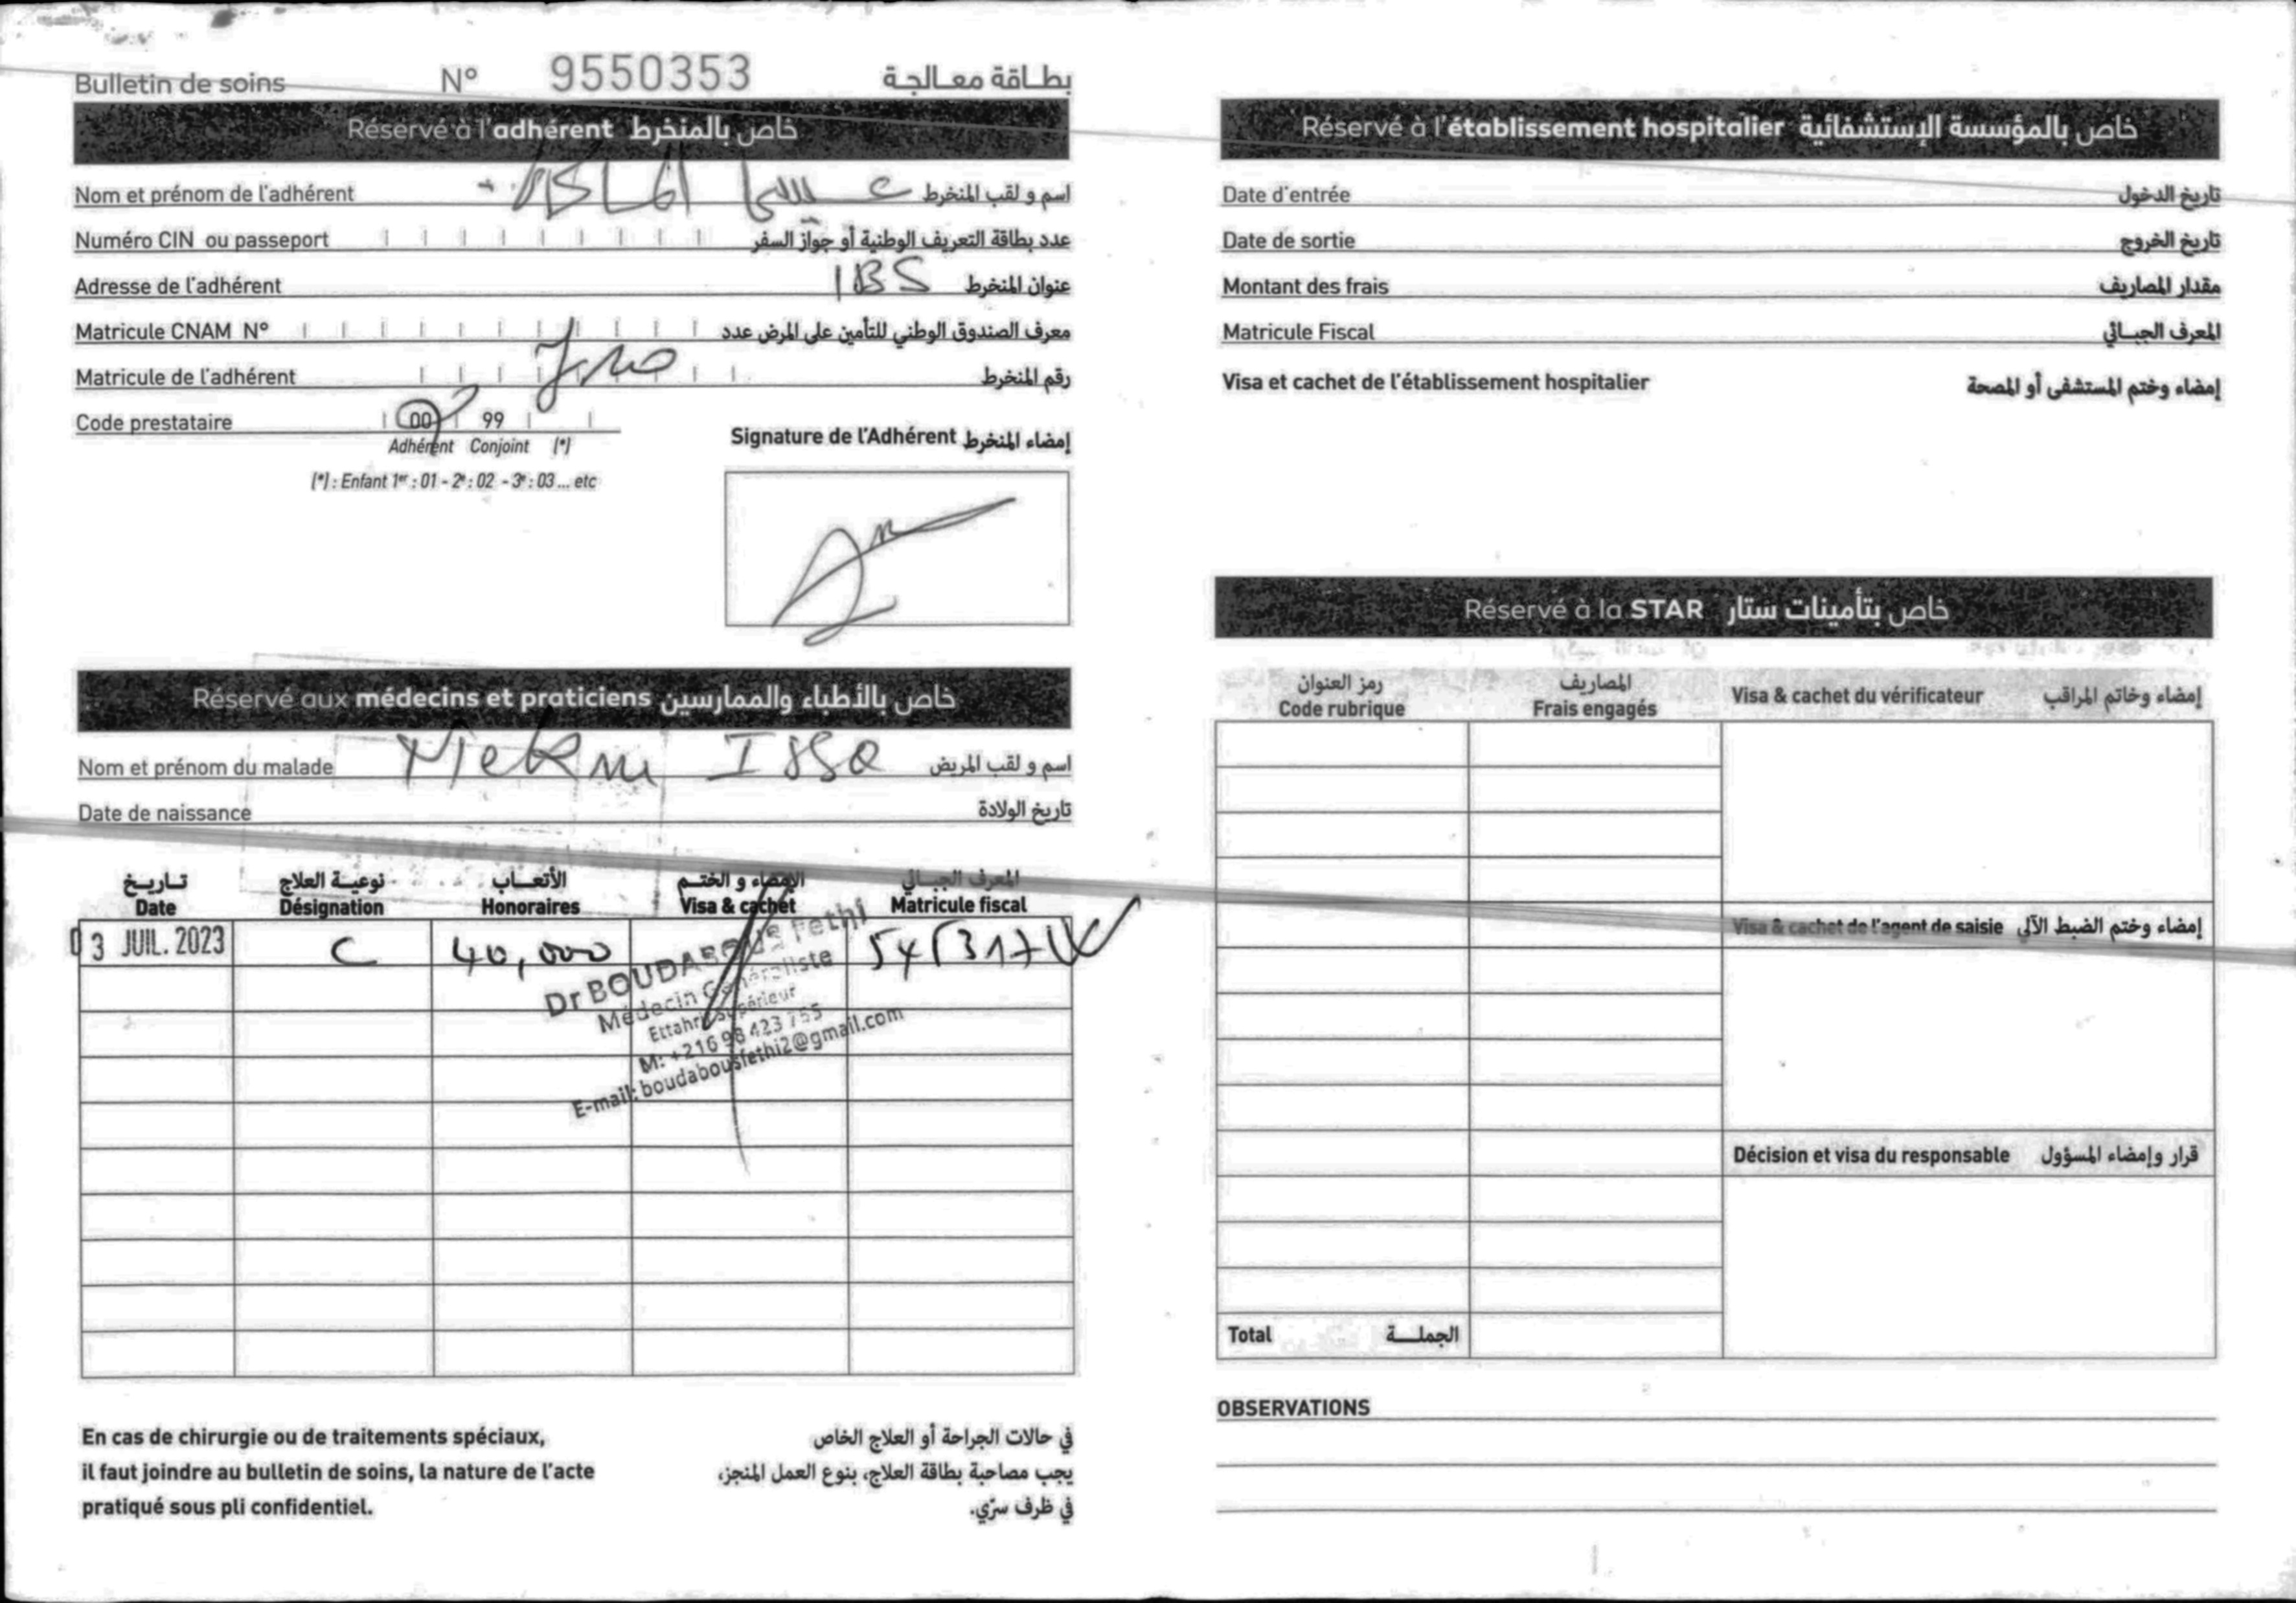 Bulletin de soins N° 9550353 بطاقة معالجة
Réservé à l'adhérent خاص بالمنخرط
Nom et prénom de l'adhérent عيسى اسم و لقب المنخرط
Numéro CIN ou passeport عدد بطاقة التعريف الوطنية أو جواز السفر
Adresse de l'adhérent IBS عنوان المنخرط
Matricule CNAM N° معرف الصندوق الوطني للتأمين على المرض عدد
Matricule de l'adhérent رقم المنخرط
Code prestataire 00 99
Adhérent Conjoint (*)
(*) : Enfant 1er : 01 - 2e : 02 - 3e : 03 ... etc
Signature de l'Adhérent إمضاء المنخرط
Réservé aux médecins et praticiens خاص بالأطباء والممارسين
Nom et prénom du malade Mekni Issa اسم و لقب المريض
Date de naissance تاريخ الولادة
تاريخ نوعية العلاج الأتعاب الإمضاء و الختم المعرف الجبائي
Date Désignation Honoraires Visa & cachet Matricule fiscal
03 JUIL. 2023 C 40,000
Dr BOUDABOUS Fethi
Médecin Généraliste
Ettahrir Supérieur
M: +216 98 423 755
E-mail: boudabousfethi2@gmail.com
En cas de chirurgie ou de traitements spéciaux,
il faut joindre au bulletin de soins, la nature de l'acte
pratiqué sous pli confidentiel.
في حالات الجراحة أو العلاج الخاص
يجب مصاحبة بطاقة العلاج، بنوع العمل المنجز،
في ظرف سرّي.
Réservé à l'établissement hospitalier خاص بالمؤسسة الإستشفائية
Date d'entrée تاريخ الدخول
Date de sortie تاريخ الخروج
Montant des frais مقدار المصاريف
Matricule Fiscal المعرف الجبائي
Visa et cachet de l'établissement hospitalier إمضاء وختم المستشفى أو المصحة
Réservé à la STAR خاص بتأمينات ستار
رمز العنوان المصاريف
Code rubrique Frais engagés Visa & cachet du vérificateur إمضاء وخاتم المراقب
Visa & cachet de l'agent de saisie إمضاء وختم الضبط الآلي
Décision et visa du responsable قرار وإمضاء المسؤول
Total الجملة
OBSERVATIONS